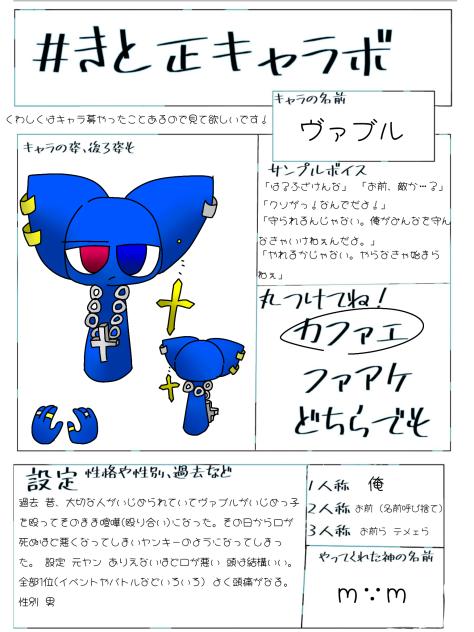 #きと正キャラボ
くわしくはキャラ募やったことあるので見て欲しいです！
キャラの名前
ヴァブル
キャラの姿、後ろ姿も
サンプルボイス
「はぁ？ざけんな」 「お前、敵か…？」
「クソがっ！なんでだよ！」
「守られるんじゃない。俺がみんなを守ん
なきゃいけねぇんだよ。」
「やれるかじゃない。やらなきゃ始まら
ねぇ」
丸つけてね！
カファエ
ファアケ
どちらでも
設定 性格や性別、過去など
過去 昔、大切な人がいじめられていてヴァブルがいじめっ子
を殴ってそのまま喧嘩(殴り合い)になった。その日から口が
死ぬほど悪くなってしまいヤンキーのようになってしまっ
た。 設定 元ヤン ありえないほど口が悪い 頭は結構いい。
全部1位(イベントやバトルなどいろいろ) よく頭痛がなる。
性別 男
1人称 俺
2人称 お前（名前呼び捨て）
3人称 お前ら テメェら
やってくれた神の名前
m∵m